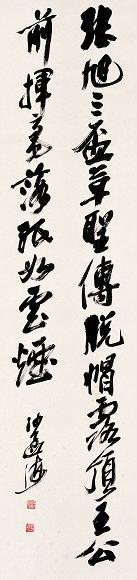 張旭三盃草聖傳脫帽露頂王公
前揮毫落紙如雲煙
沙孟海